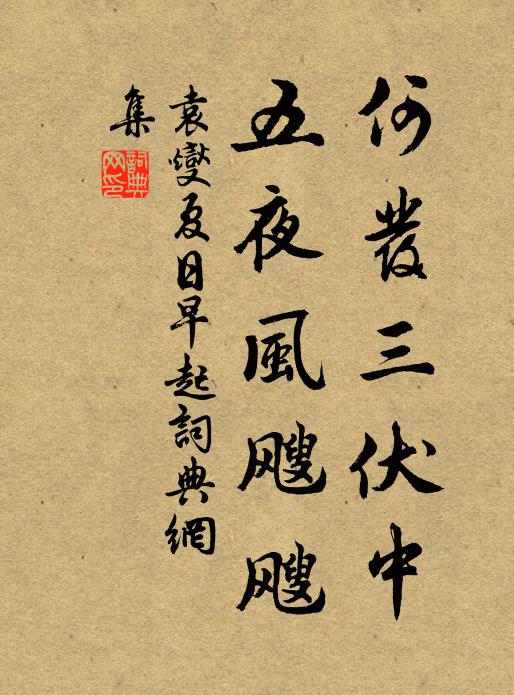 何發三伏中
五夜風颼颼
袁燮夏日早起詞典網
集
詞典網印